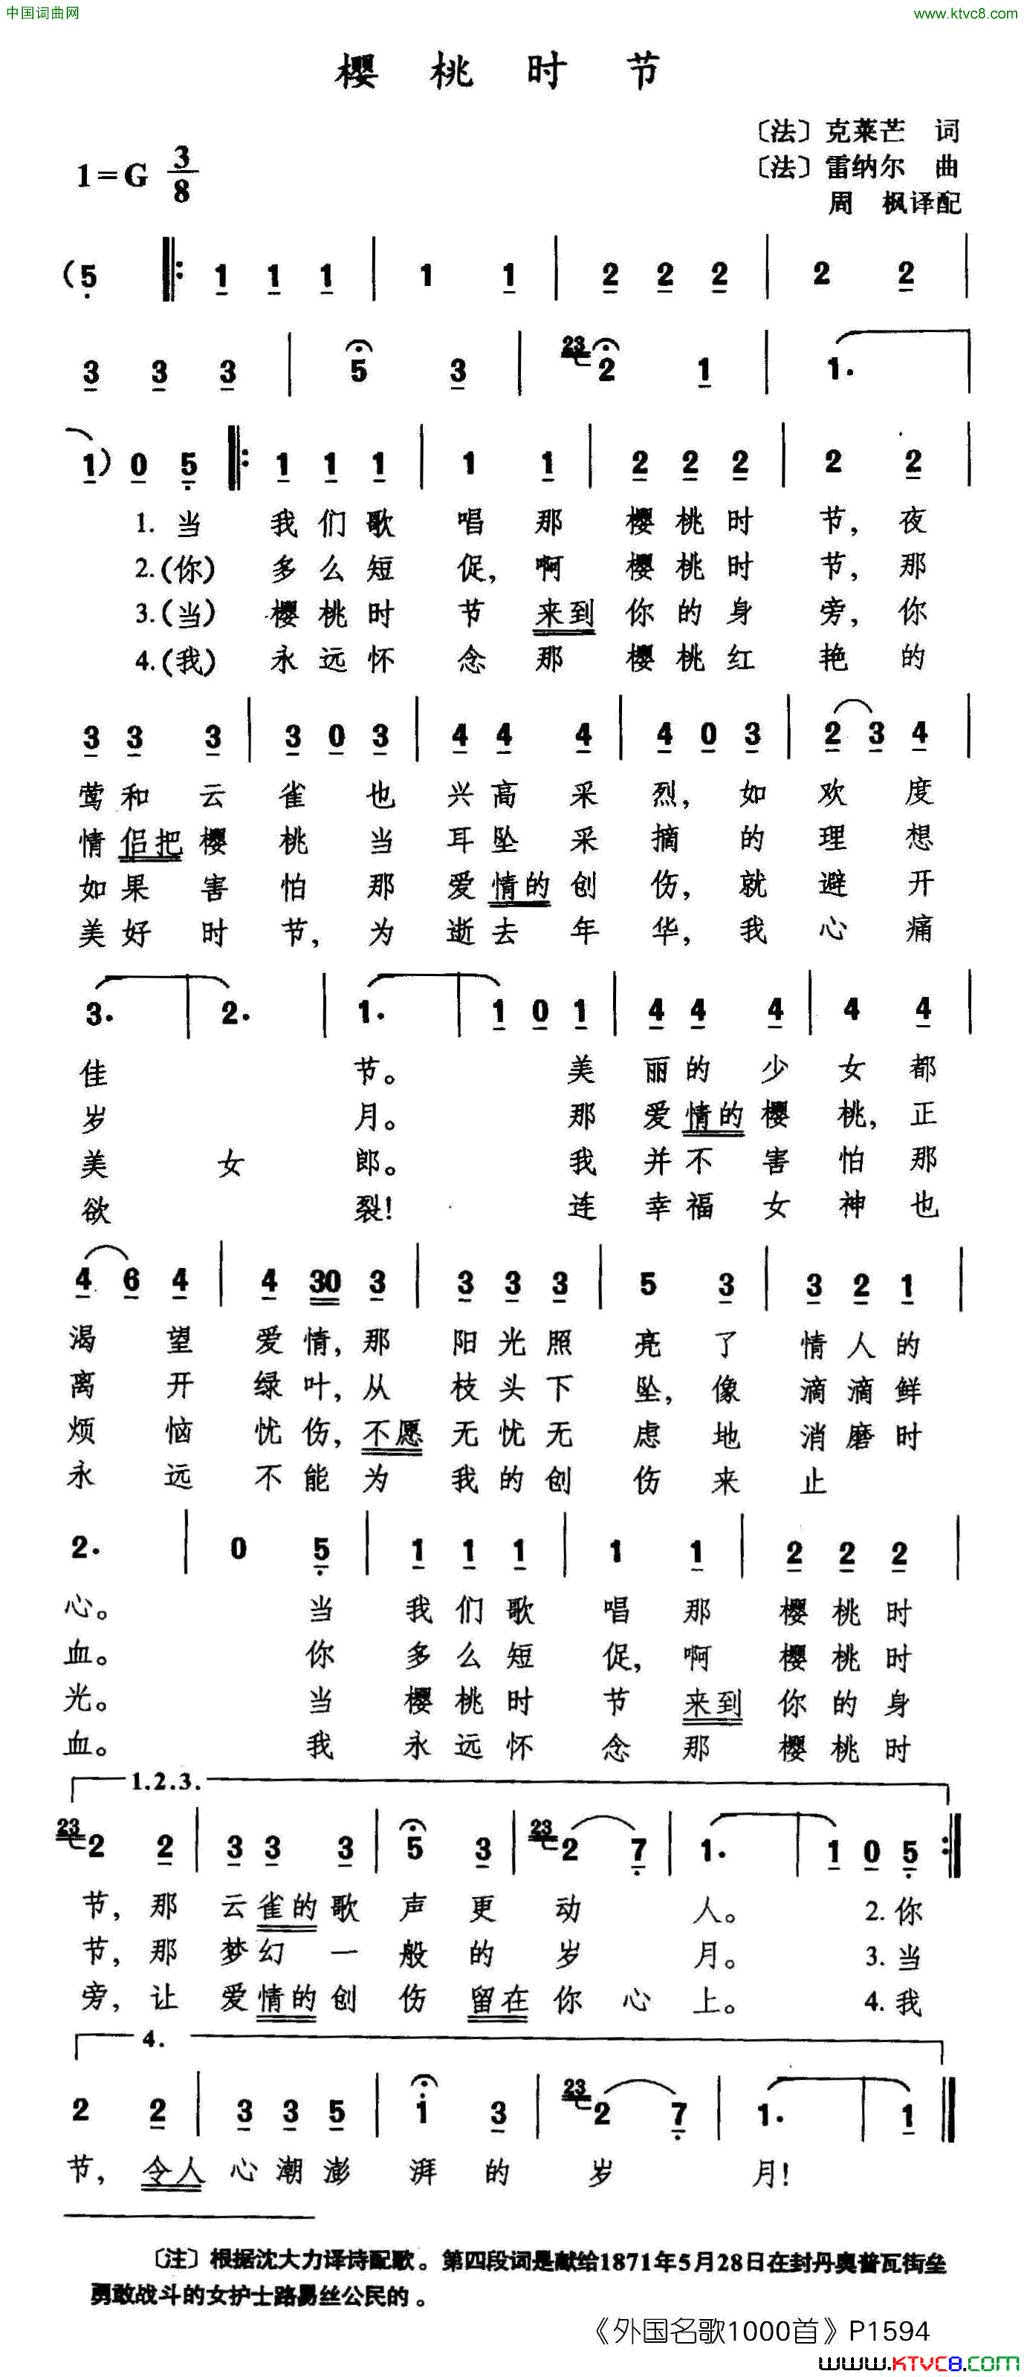 中国词曲网
www.ktvc8.com
樱 桃 时 节
〔法〕克莱芒 词
1=G 3/8
〔法〕雷纳尔 曲
周 枫译配
(5 1 1 1 1 1 2 2 2 2 2
3 3 3 5 3 23 2 1 1.
1) 0 5 1 1 1 1 1 2 2 2 2 2
1. 当 我 们 歌 唱 那 樱 桃 时 节, 夜
2.(你) 多 么 短 促, 啊 樱 桃 时 节, 那
3.(当) 樱 桃 时 节 来到 你 的 身 旁, 你
4.(我) 永 远 怀 念 那 樱 桃 红 艳 的
3 3 3 3 0 3 4 4 4 4 0 3 2 3 4
莺 和 云 雀 也 兴 高 采 烈, 如 欢 度
情 侣把 樱 桃 当 耳 坠 采 摘 的 理 想
如 果 害 怕 那 爱 情的 创 伤, 就 避 开
美 好 时 节, 为 逝 去 年 华, 我 心 痛
3. 2. 1. 1 0 1 4 4 4 4 4
佳 节。 美 丽 的 少 女 都
岁 月。 那 爱 情的 樱 桃, 正
美 女 郎。 我 并 不 害 怕 那
欲 裂! 连 幸 福 女 神 也
4 6 4 4 30 3 3 3 3 5 3 3 2 1
渴 望 爱 情, 那 阳 光 照 亮 了 情 人 的
离 开 绿 叶, 从 枝 头 下 坠, 像 滴 滴 鲜
烦 恼 忧 伤, 不愿 无 忧 无 虑 地 消 磨 时
永 远 不 能 为 我 的 创 伤 来 止
2. 0 5 1 1 1 1 1 2 2 2
心。 当 我 们 歌 唱 那 樱 桃 时
血。 你 多 么 短 促, 啊 樱 桃 时
光。 当 樱 桃 时 节 来到 你 的 身
血。 我 永 远 怀 念 那 樱 桃 时
1.2.3.
23 2 2 3 3 3 5 3 23 2 7 1. 1 0 5
节, 那 云 雀的 歌 声 更 动 人。 2. 你
节, 那 梦 幻 一 般 的 岁 月。 3. 当
旁, 让 爱 情的 创 伤 留在 你 心 上。 4. 我
4.
2 2 3 3 5 1 3 23 2 7 1. 1
节, 令人 心 潮 澎 湃 的 岁 月!
〔注〕根据沈大力译诗配歌。第四段词是献给1871年5月28日在封丹奥普瓦街垒
勇敢战斗的女护士路易丝公民的。
《外国名歌1000首》P1594
www.KTVC8.com